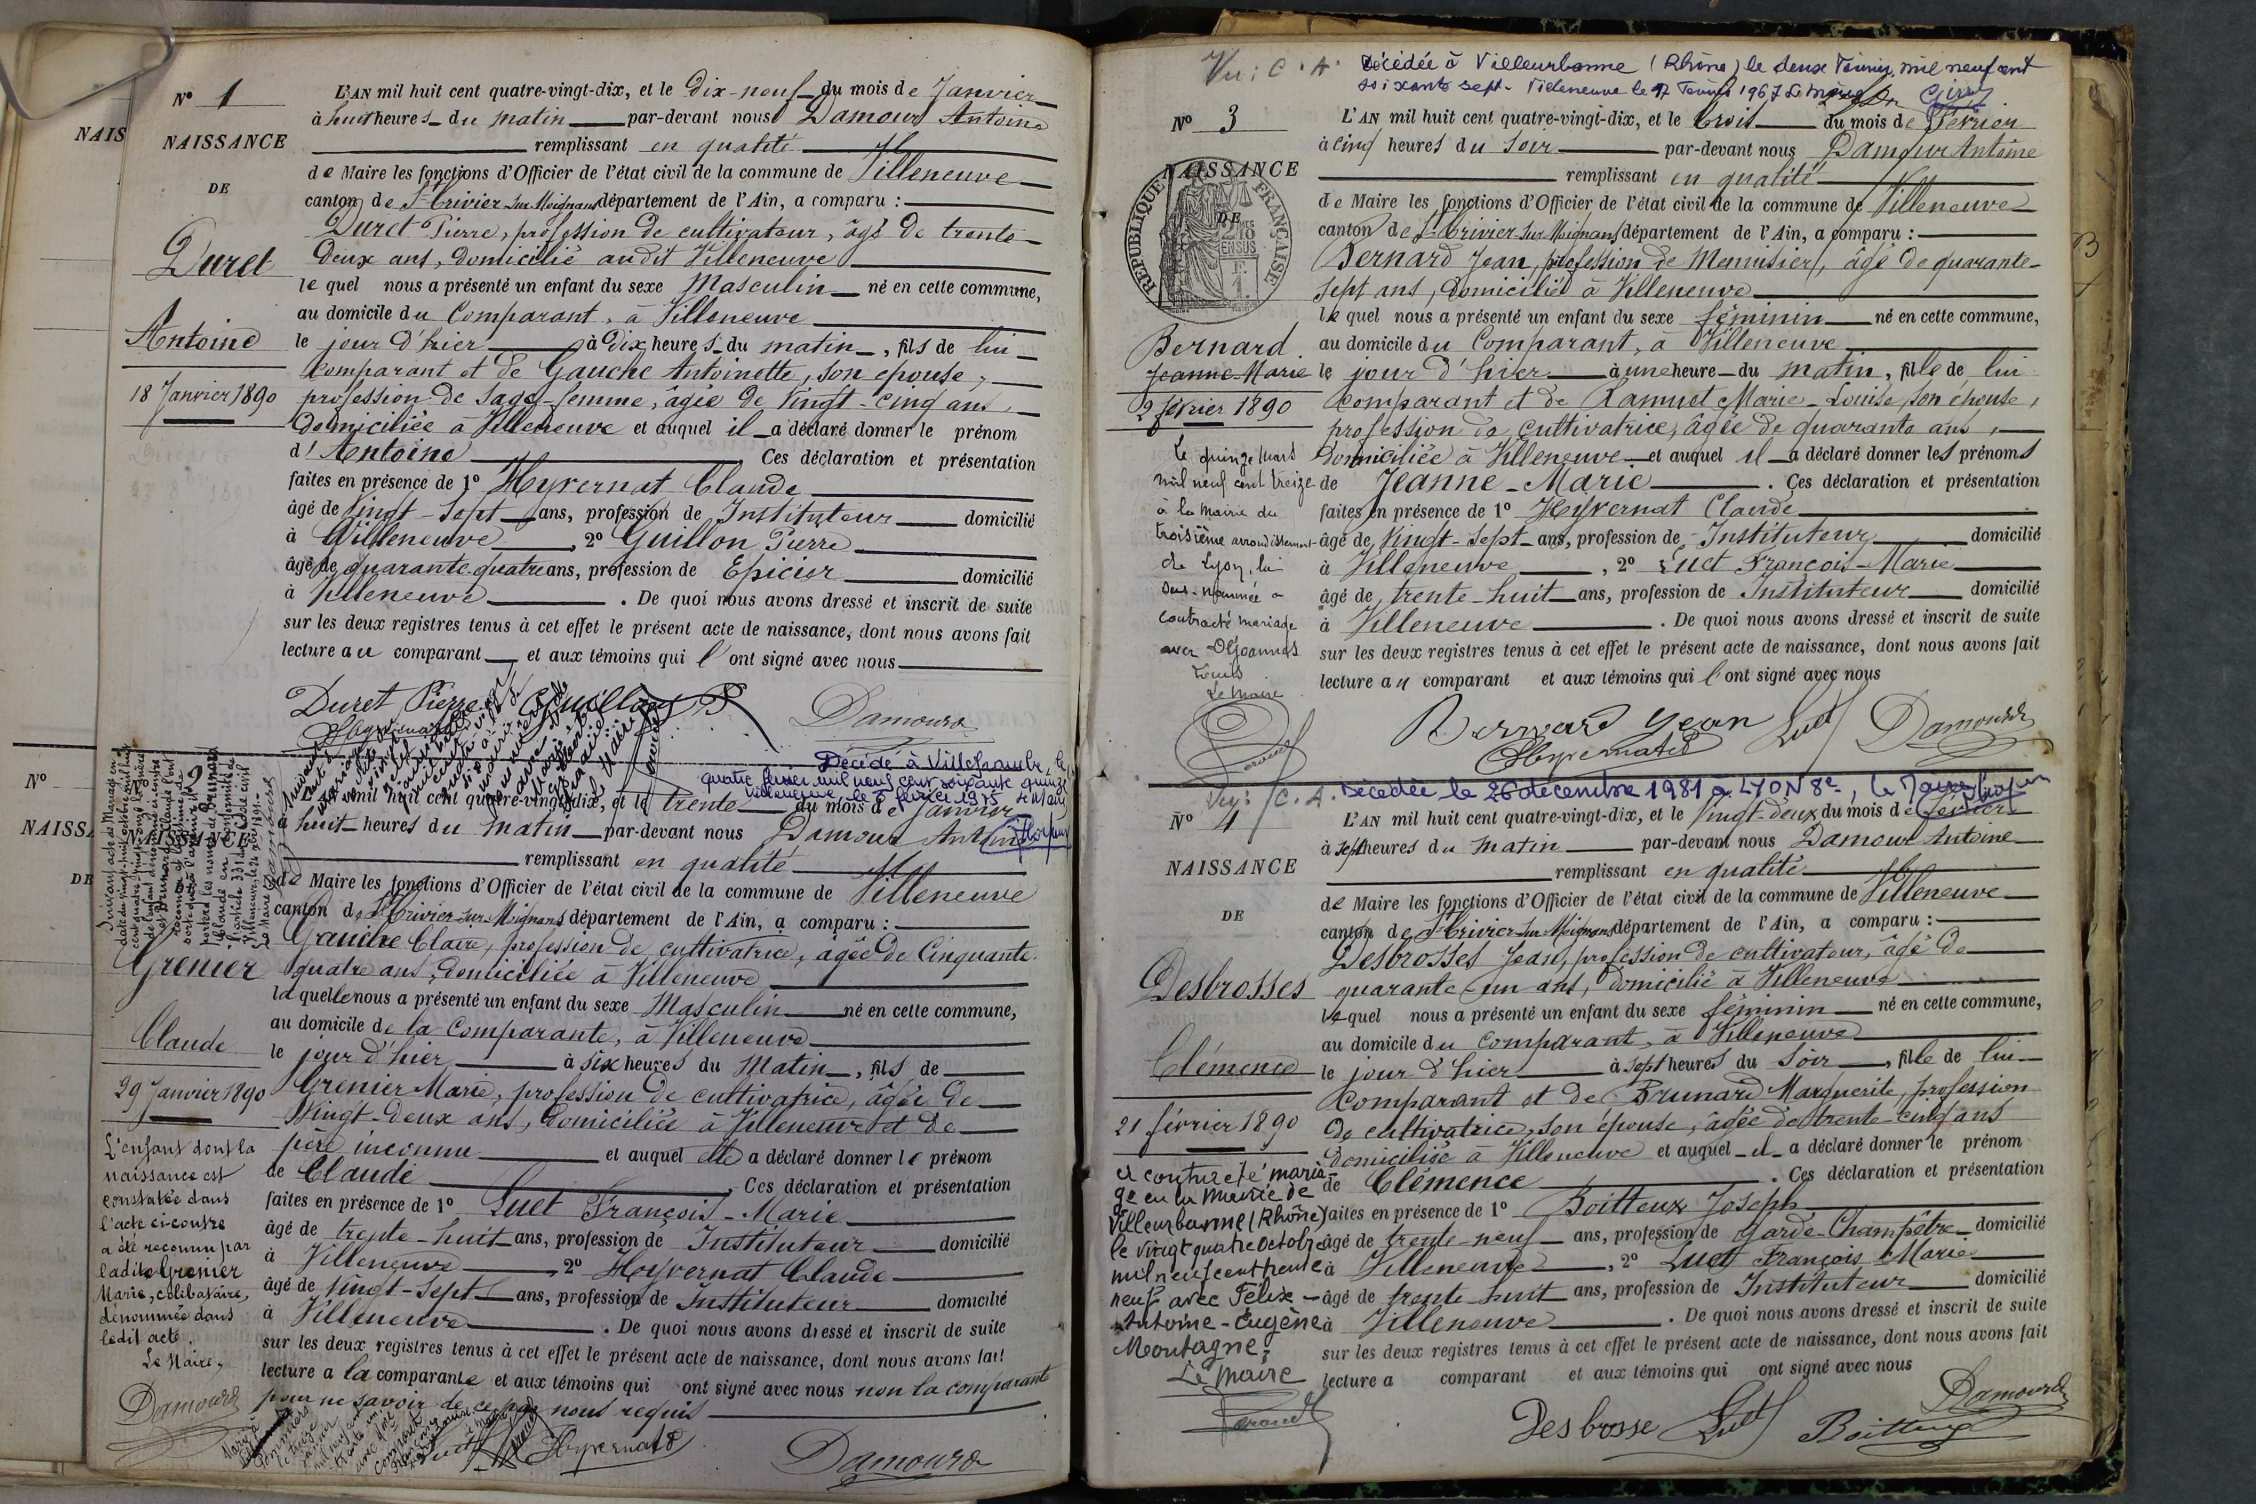 NAIS
Nº 1
NAISSANCE
DE
Duret
Antoine
18 Janvier 1890
L'AN mil huit cent quatre-vingt-dix, et le Dix-neuf du mois de Janvier
à huit heures du matin par-devant nous Damour Antoine
remplissant en qualité
de Maire les fonctions d'Officier de l'état civil de la commune de Villeneuve
canton de St Trivier sur Moignans département de l'Ain, a comparu :
Duret Pierre, profession de cultivateur, âgé de trente
deux ans, domicilié audit Villeneuve
lequel nous a présenté un enfant du sexe Masculin né en cette commune,
au domicile du Comparant, à Villeneuve
le jour d'hier à dix heures du matin, fils de lui
comparant et de Gauche Antoinette, son épouse,
profession de Sage-femme, âgée de Vingt-cinq ans,
Domiciliée à Villeneuve et auquel il a déclaré donner le prénom
d'Antoine Ces déclaration et présentation
faites en présence de 1º Hyvernat Claude
âgé de Vingt-Sept ans, profession de Instituteur domicilié
à Villeneuve, 2º Guillon Pierre
âgé de quarante-quatre ans, profession de Epicier domicilié
à Villeneuve. De quoi nous avons dressé et inscrit de suite
sur les deux registres tenus à cet effet le présent acte de naissance, dont nous avons fait
lecture au comparant et aux témoins qui l'ont signé avec nous
Duret Pierre Guillon P
Hyvernat Damour
Nº
NAISSA
DE
Nº 2
NAISSANCE
Grenier
Claude
29 Janvier 1890
L'enfant dont la
naissance est
constatée dans
l'acte ci-contre
a été reconnu par
ladite Grenier
Marie, célibataire,
dénommée dans
ledit acte.
Le Maire,
Damour
Décédé à Villefranche, le
quatre février mil neuf cent soixante quinze
Villeneuve le 5 février 1975
L'an mil huit cent quatre-vingt-dix, et le trente du mois de Janvier
à huit heures du matin par-devant nous Damour Antoine
remplissant en qualité
de Maire les fonctions d'Officier de l'état civil de la commune de Villeneuve
canton de St Trivier sur Moignans département de l'Ain, a comparu :
Gauche Claire, profession de cultivatrice, âgée de Cinquante
quatre ans, domiciliée à Villeneuve
laquelle nous a présenté un enfant du sexe Masculin né en cette commune,
au domicile de la Comparante, à Villeneuve
le jour d'hier à six heures du Matin, fils de
Grenier Marie, profession de cultivatrice, âgée de
Vingt-Deux ans, Domiciliée à Villeneuve et de
père inconnu et auquel elle a déclaré donner le prénom
de Claude Ces déclaration et présentation
faites en présence de 1º Luet François-Marie
âgé de trente-huit ans, profession de Instituteur domicilié
à Villeneuve 2º Hyvernat Claude
âgé de Vingt-Sept ans, profession de Instituteur domicilié
à Villeneuve. De quoi nous avons dressé et inscrit de suite
sur les deux registres tenus à cet effet le présent acte de naissance, dont nous avons fait
lecture a la comparante et aux témoins qui ont signé avec nous non la comparante
pour ne savoir de ce par nous requis
Luet Hyvernat
Damour
Vu : C. A. Décédée à Villeurbanne (Rhône) le deux Février mil neuf cent
soixante sept. Villeneuve le 17 Février 1967 Le Maire
Nº 3
NAISSANCE
DE
REPUBLIQUE FRANÇAISE
Bernard
Jeanne-Marie
2 février 1890
Le quinze Mars
mil neuf cent treize
à la Mairie du
troisième arrondissement
de Lyon, la
sus-nommée a
contracté mariage
avec
Louis
Le Maire
L'AN mil huit cent quatre-vingt-dix, et le trois du mois de Février
à cinq heures du Soir par-devant nous Damour Antoine
remplissant en qualité
de Maire les fonctions d'Officier de l'état civil de la commune de Villeneuve
canton de St Trivier sur Moignans département de l'Ain, a comparu :
Bernard Jean, profession de Menuisier, âgé de quarante-
sept ans, domicilié à Villeneuve
lequel nous a présenté un enfant du sexe féminin né en cette commune,
au domicile du Comparant, à Villeneuve
le jour d'hier à une heure du matin, fille de lui
comparant et de Ramuet Marie-Louise, son épouse,
profession de cultivatrice, âgée de quarante ans,
domiciliée à Villeneuve et auquel il a déclaré donner les prénoms
de Jeanne-Marie. Ces déclaration et présentation
faites en présence de 1º Hyvernat Claude
âgé de Vingt-Sept ans, profession de Instituteur domicilié
à Villeneuve, 2º Luet François-Marie
âgé de trente-huit ans, profession de Instituteur domicilié
à Villeneuve. De quoi nous avons dressé et inscrit de suite
sur les deux registres tenus à cet effet le présent acte de naissance, dont nous avons fait
lecture au comparant et aux témoins qui l'ont signé avec nous
Bernard Jean Luet Damour
Hyvernat
Vu : C. A. Décédée le 26 décembre 1981 à LYON 8e, le Maire
Nº 4
NAISSANCE
DE
Desbrosses
Clémence
21 février 1890
A contracté maria-
ge en la Mairie de
Villeurbanne (Rhône)
le vingt quatre octobre
mil neuf cent trente
neuf avec Félix-
Antoine-Eugène
Montagne,
Le Maire
L'AN mil huit cent quatre-vingt-dix, et le Vingt-deux du mois de février
à sept heures du matin par-devant nous Damour Antoine
remplissant en qualité
de Maire les fonctions d'Officier de l'état civil de la commune de Villeneuve
canton de St Trivier sur Moignans département de l'Ain, a comparu :
Desbrosses Jean, profession de cultivateur, âgé de
quarante-un ans, domicilié à Villeneuve
lequel nous a présenté un enfant du sexe féminin né en cette commune,
au domicile du comparant, à Villeneuve
le jour d'hier à sept heures du soir, fille de lui
comparant et de Brunard Marguerite, profession
de cultivatrice, son épouse, âgée de trente-cinq ans
domiciliée à Villeneuve et auquel il a déclaré donner le prénom
de Clémence. Ces déclaration et présentation
faites en présence de 1º Boitteux Joseph
âgé de trente-neuf ans, profession de garde-Champêtre domicilié
à Villeneuve, 2º Luet François Marie
âgé de trente-huit ans, profession de Instituteur domicilié
à Villeneuve. De quoi nous avons dressé et inscrit de suite
sur les deux registres tenus à cet effet le présent acte de naissance, dont nous avons fait
lecture a comparant et aux témoins qui ont signé avec nous
Desbrosse Luet Boitteux Damour